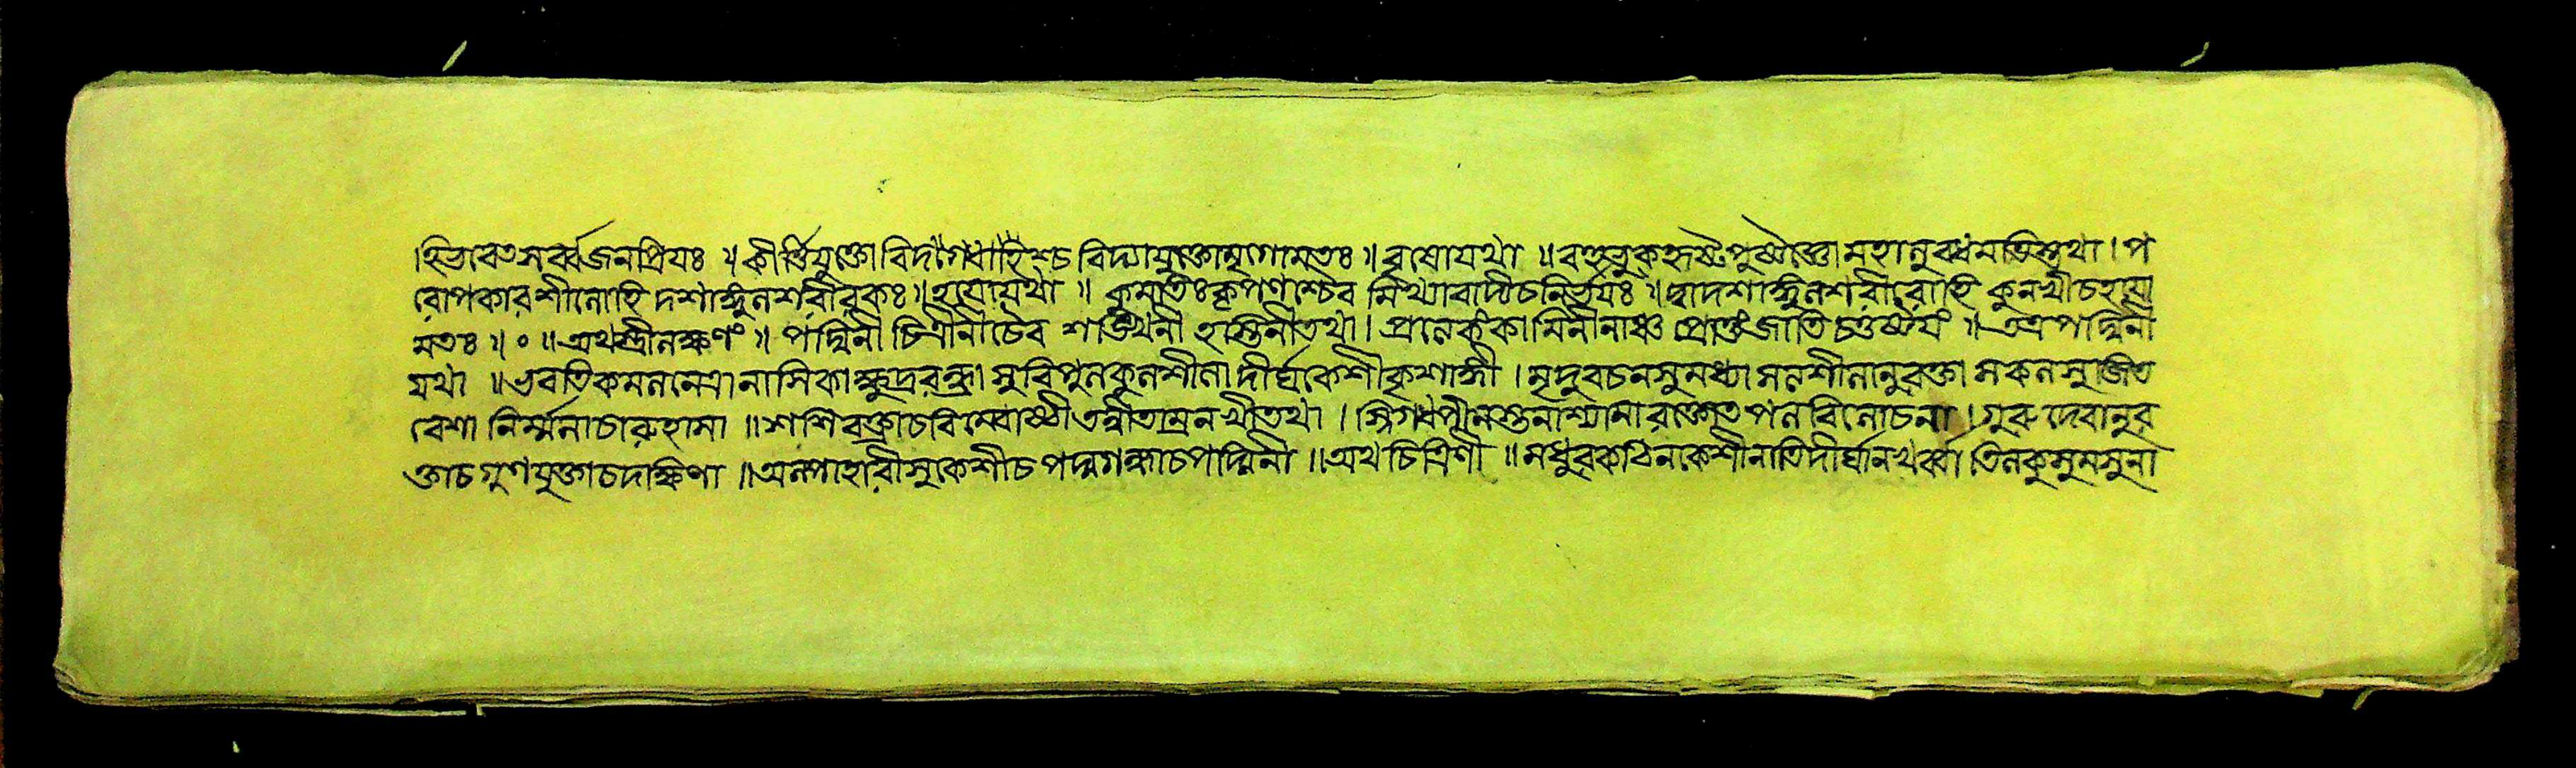 ।হিভবেত সর্ব্বজনপ্রিয়ঃ ॥ কীর্ত্তিযুক্তো বিদগ্ধোহিশ্চ বিদ্যাযুক্তোমৃগোমতঃ ॥ বৃষোযথা ॥ বহুভুকহৃষ্টপুষ্টোশ্চো মহানুবন্ধমতিস্তথা । প
রোপকারশীলোহি দশাঙ্গুলশরীরকঃ ॥ হয়োযথা ॥ কুমতিঃকৃপণাশ্চৈব মিথ্যাবাদীচনির্ভয়ঃ ॥ দ্বাদশাঙ্গুলশরীরোহি কুনখীচহয়ো
মতঃ ॥ ০ ॥ অথস্ত্রীলক্ষণং ॥ পদ্মিনী চিত্রীনীচৈব শঙ্খিনী হস্তিনীতথা । প্রত্যেকংকামিনীনাঞ্চ প্রোক্তংজাতি চতুষ্টয়ং ॥ তত্রপদ্মিনী
যথা ॥ ভবতিকমলনেত্রা নাসিকাক্ষুদ্ররন্ধ্রা সুবিপুলকুলশীলা দীর্ঘকেশীকৃশাঙ্গী । মৃদুবচনসুমধ্যা মলশীলানুরক্তা সকলসুজিত
বেশা নির্ম্মলাচারুহাসা ॥ শশিবক্ত্রাচবিম্বোষ্ঠী তন্বীতাম্রনখীতথা । স্নিগধপীনস্তনাশ্যামা রক্তোতপলবিলোচনা । গুরুদেবানুর
ক্তাচ গুণযুক্তাচদক্ষিণা ॥ অল্পাহারীসুকেশীচ পদ্মগন্ধাচপদ্মিনী ॥ অথচিত্রিণী ॥ মধুরকঠিনকেশীনাতিদীর্ঘানখর্ব্বা তিলকুসুমসুনা